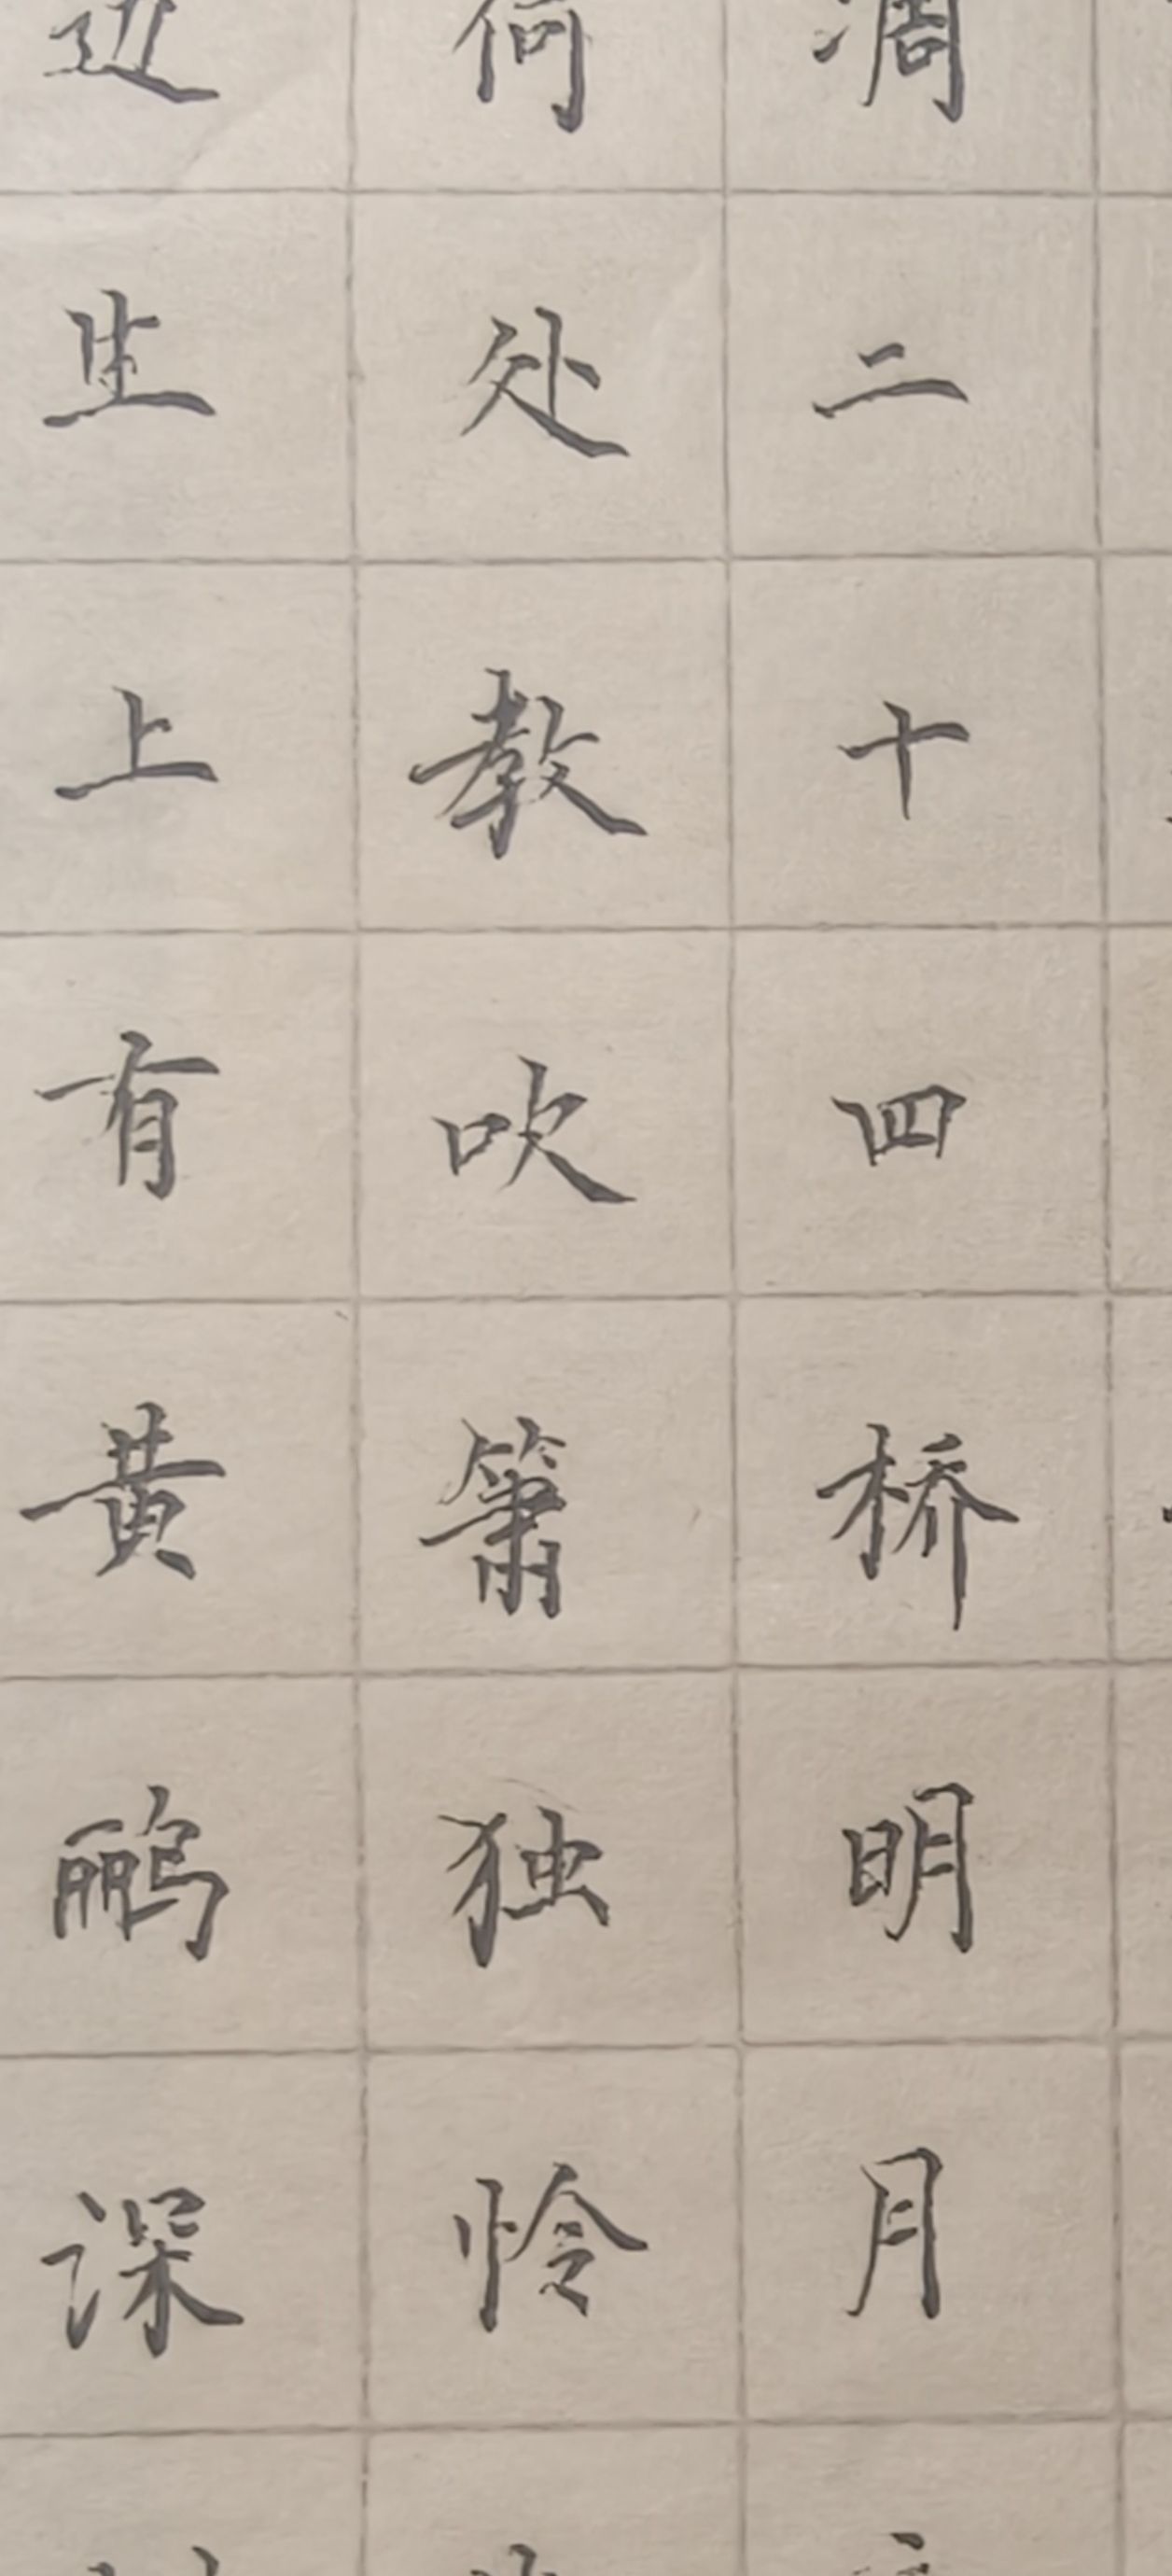 凋二十四桥明月
何处教吹箫独怜
边生上有黄鹂深